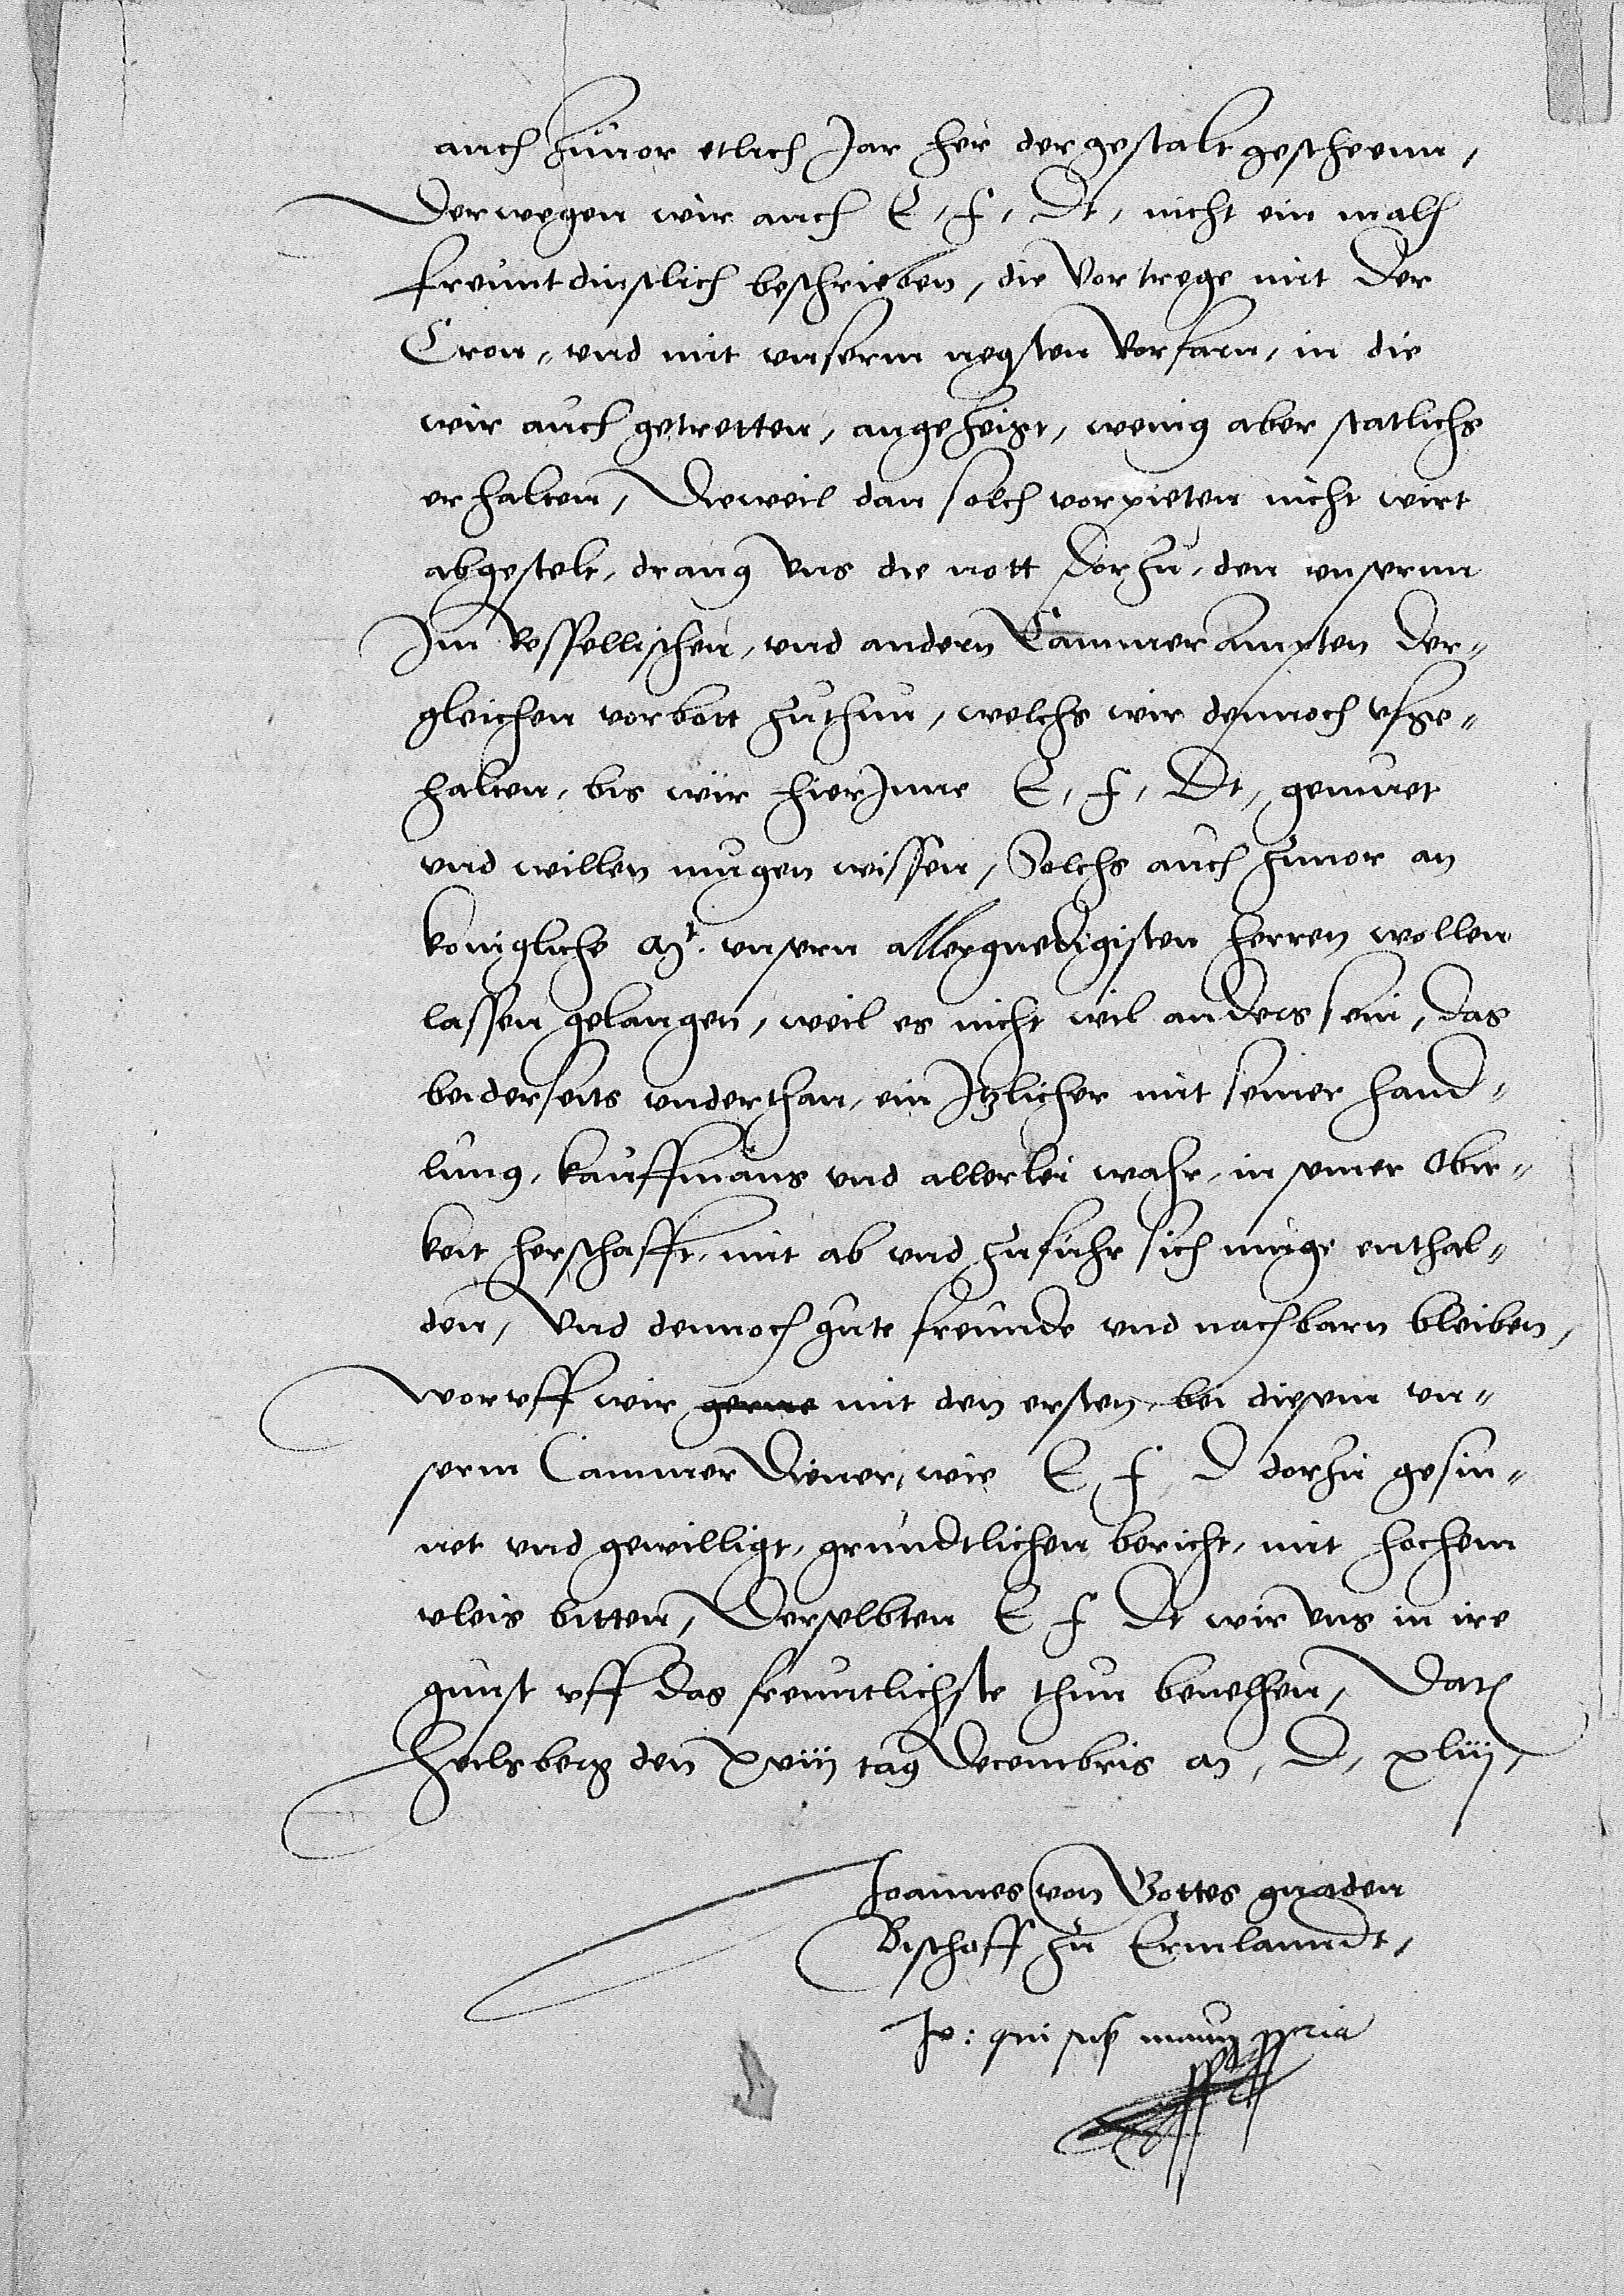 auch zuuor etlich Jar her dergestalt gescheenn,
Derwegen wir auch E, f, Dt, nicht ein malh
freuntdinstlich beschrieben, die Vortrege mit der
Cron, vnd mit vnserm negsten Vorfarn, in die
wir auch getretten, angezeigt, wenig aber statlichs
erhalten, Dieweil dan solch vorpieten nicht wirt
abgestelt, drang Vns die nott dorzu, den vnsernn
Im Resselischen, vnd andern Cammerampten der-
gleichen vorbott zuthun, welchs wir dennoch vffge-
halten, bis wir hierJnne E, f, Dt, gemuet
vnd willen mugen wissen, Solchs auch zuuor an
konigliche Mt. vnsern allergnedigisten herren wollen
lassen gelangen, weil es nicht wil anders sein, das
beiderseits vnderthan, ein Jtzlicher mit seiner hand-
lung, kauffmans vnd allerlei wahr, in seiner Ober-
keit herschafft, mit ab vnd zufuhr sich muge enthal-
den, Vnd dennoch gute freunde vnd nachbarn bleiben,
Woruff wir gerne mit den ersten, bei diesem vn-
serm Cammer Diener, wie E f D dorzu gesin-
net vnd gewilligt, grundtlichen bericht, mit hochem
vleis bitten, Derselbten E f Dt wir vns in ire
gunst vff das freuntlichste thun beuelhen, Dat
Heilsberg den xviij tag Decembris an, D, xliij,
Joannes von Gottes gnaden
Bischoff zu Ermlanndt,
Jo: qui sup manu ppria